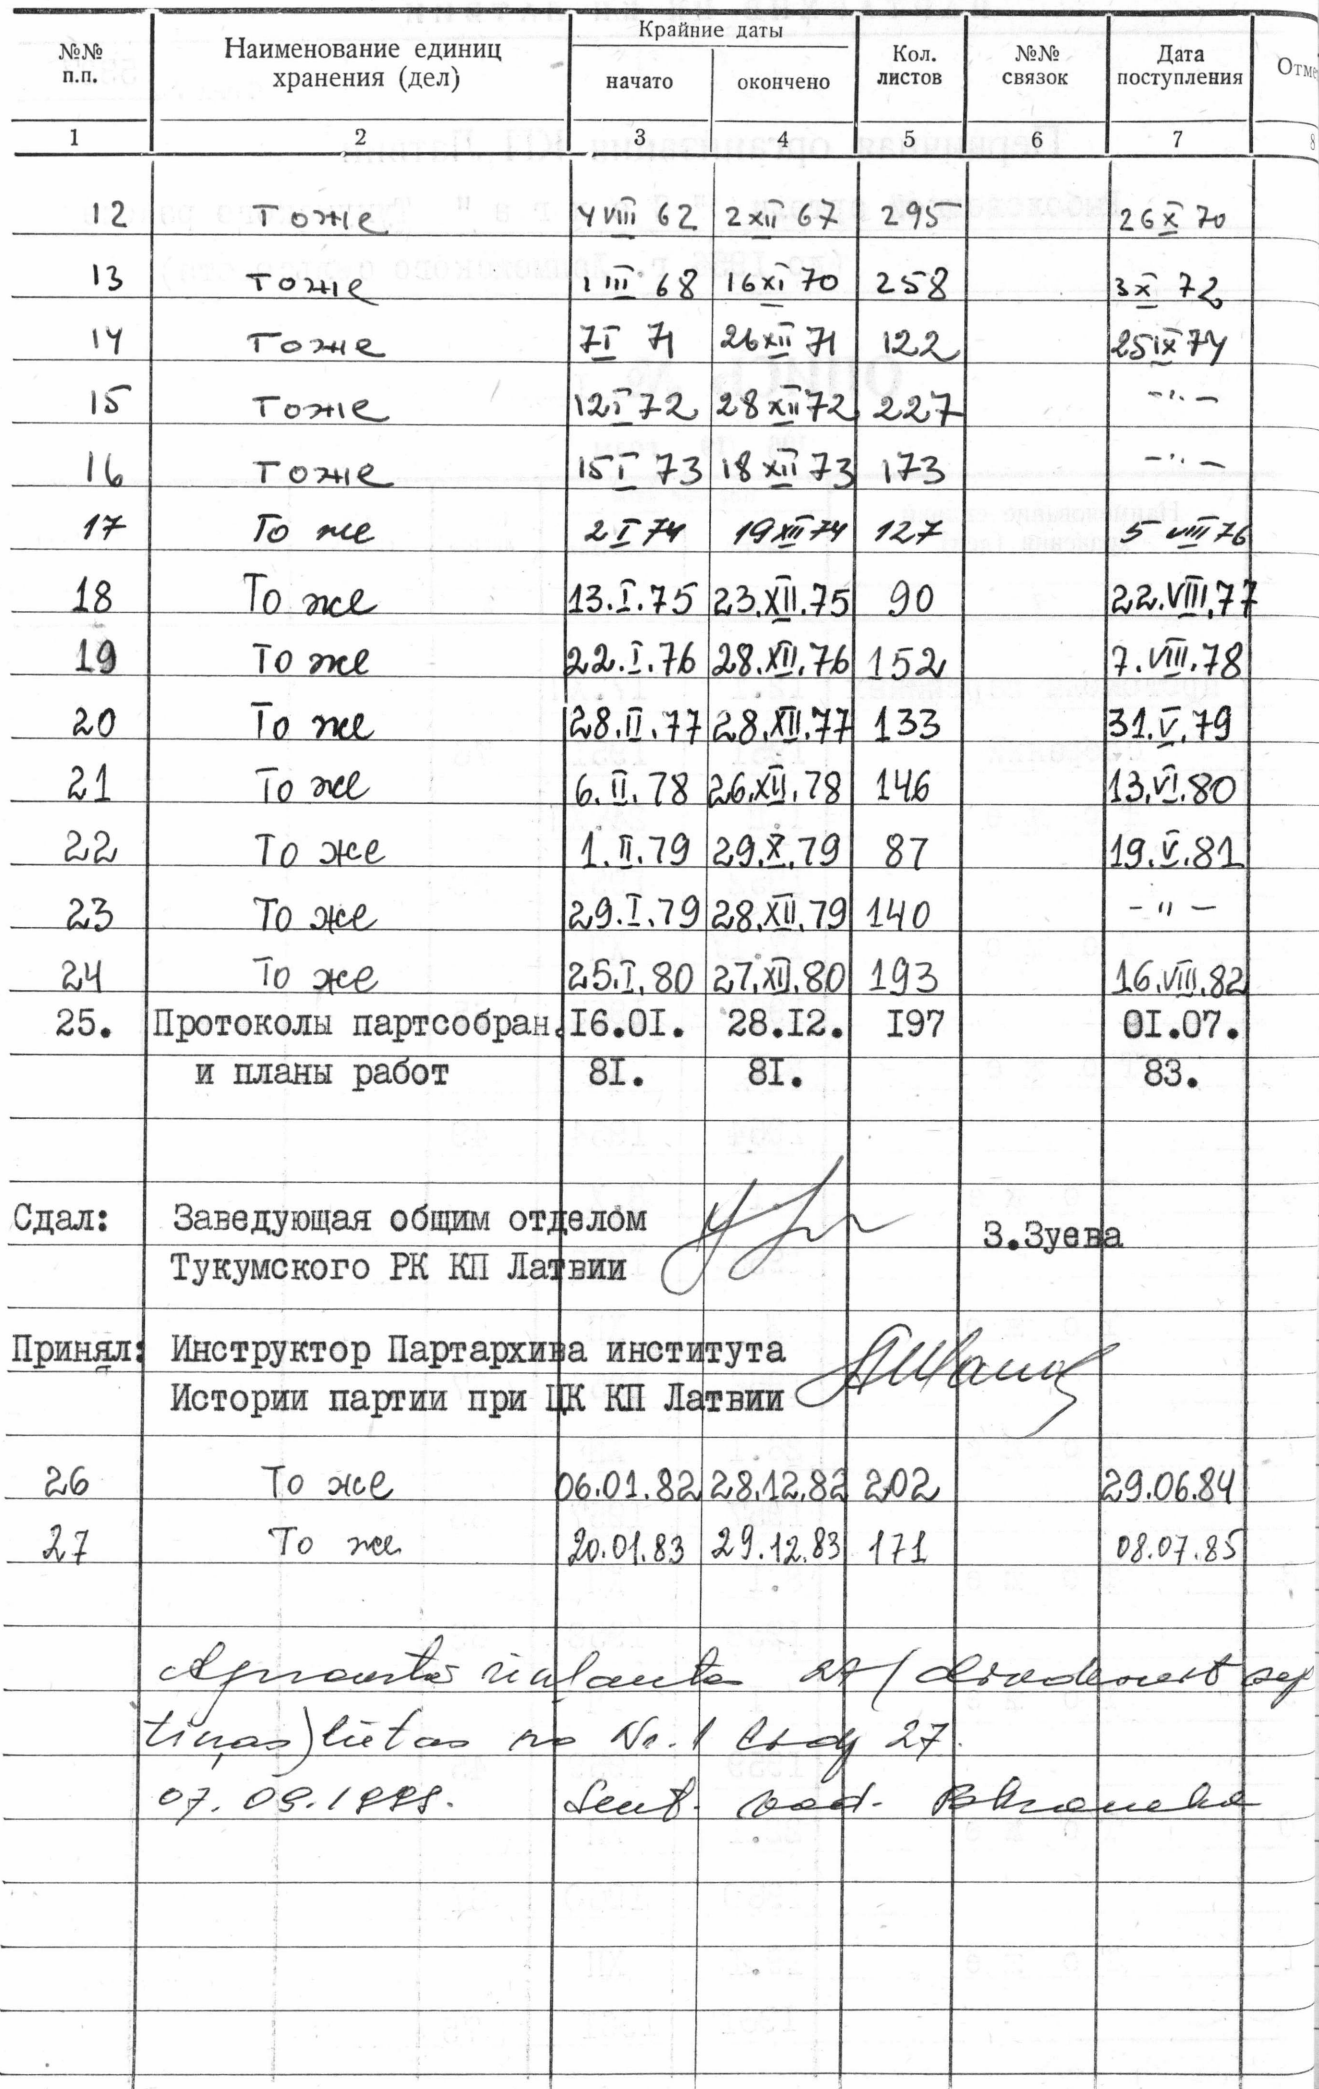 №№ п.п. Наименование единиц хранения (дел) Крайние даты Кол. листов №№ связок Дата поступления Отме
начато окончено
1 2 3 4 5 6 7 8
12 То же 4 VIII 62 2 XII 67 295 26 X 70
13 То же 1 III 68 16 XI 70 258 3 X 72
14 То же 7 I 71 26 XII 71 122 25 IX 74
15 То же 12 I 72 28 XII 72 227 -"-
16 То же 15 I 73 18 XII 73 173 -"-
17 То же 2 I 74 19 XII 74 127 5 VIII 76
18 То же 13.I.75 23.XII.75 90 22.VIII.77
19 То же 22.I.76 28.XII.76 152 7.VIII.78
20 То же 28.II.77 28.XII.77 133 31.V.79
21 То же 6.II.78 26.XII.78 146 13.VI.80
22 То же 1.II.79 29.X.79 87 19.V.81
23 То же 29.I.79 28.XII.79 140 -"-
24 То же 25.I.80 27.XII.80 193 16.VIII.82
25. Протоколы партсобран. I6.0I. 28.I2. I97 0I.07.
и планы работ 8I. 8I. 83.
Сдал: Заведующая общим отделом
З.Зуева
Тукумского РК КП Латвии
Принял: Инструктор Партархива института
Истории партии при ЦК КП Латвии
26 То же 06.01.82 28.12.82 202 29.06.84
27 То же 20.01.83 29.12.83 171 08.07.85
Aprakstā ieņautas 27 (divdesmit sep
tiņas) lietas no Nr. 1 līdz 27.